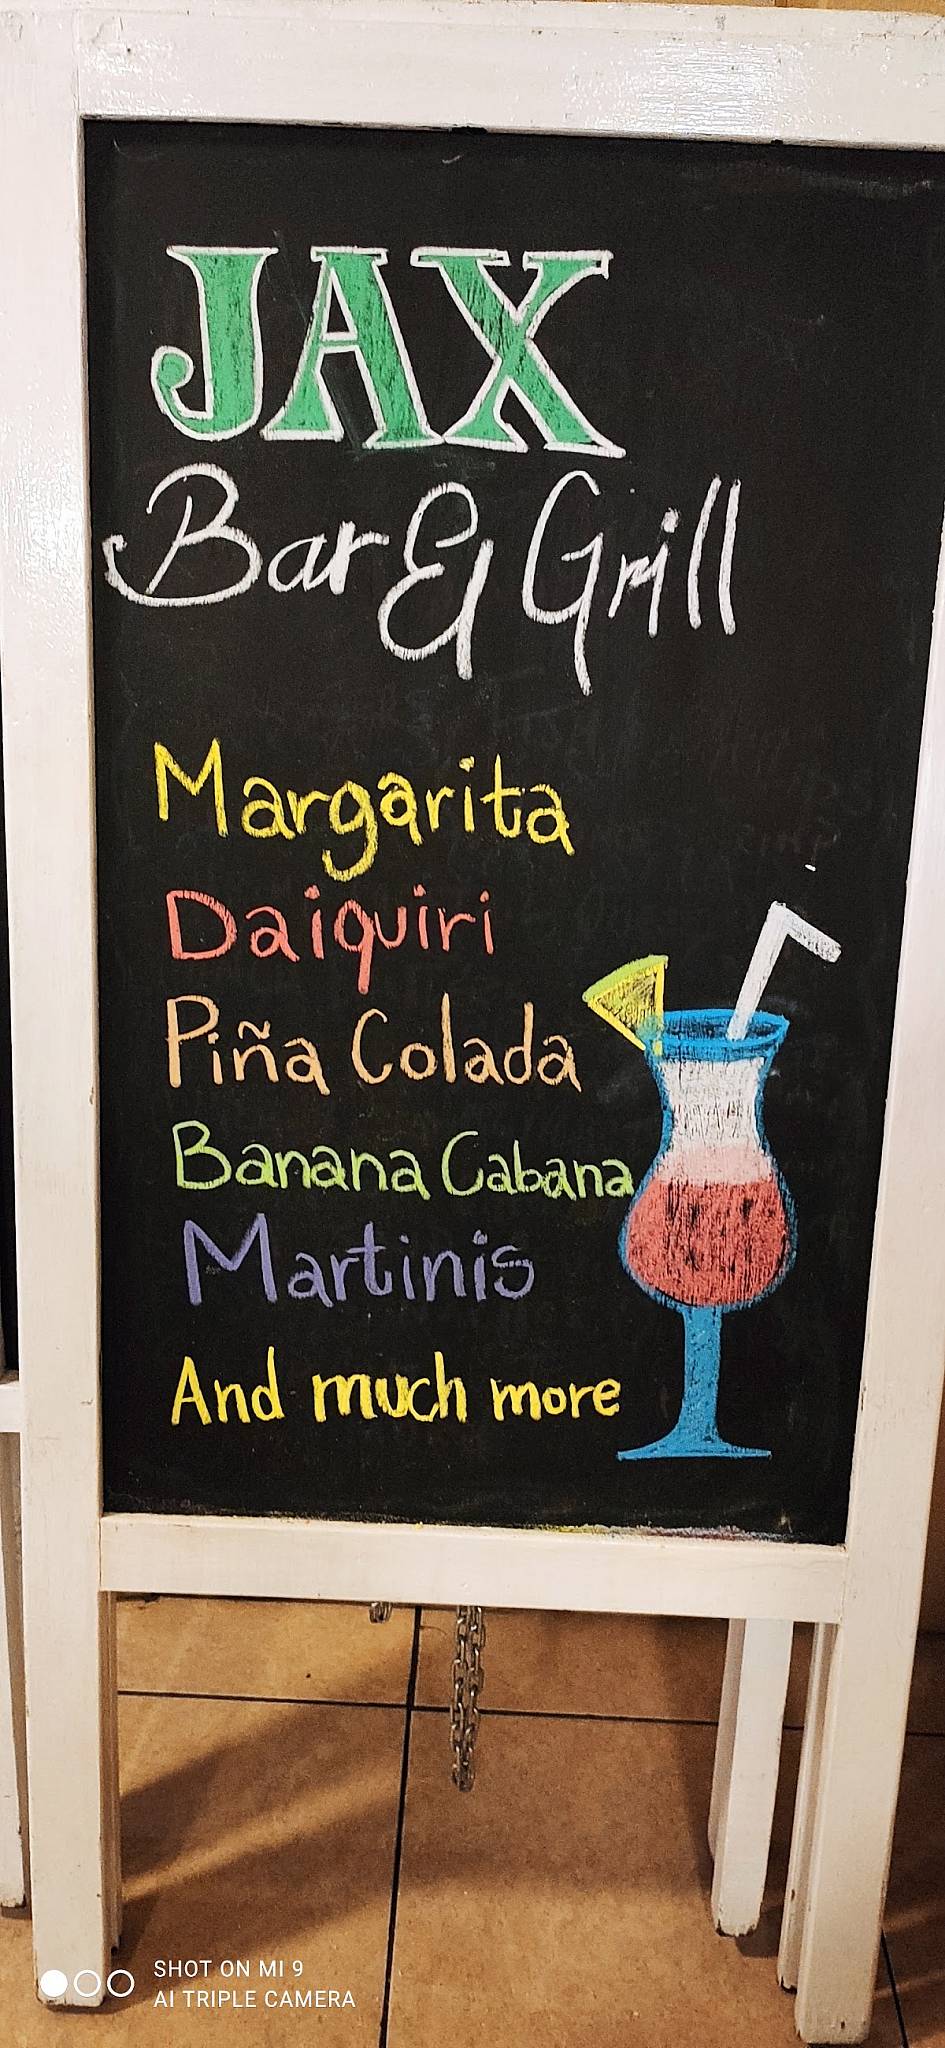 JAX
Bar & Grill
Margarita
Daiquiri
Piña Colada
Banana Cabana
Martinis
And much more
SHOT ON MI 9
AI TRIPLE CAMERA